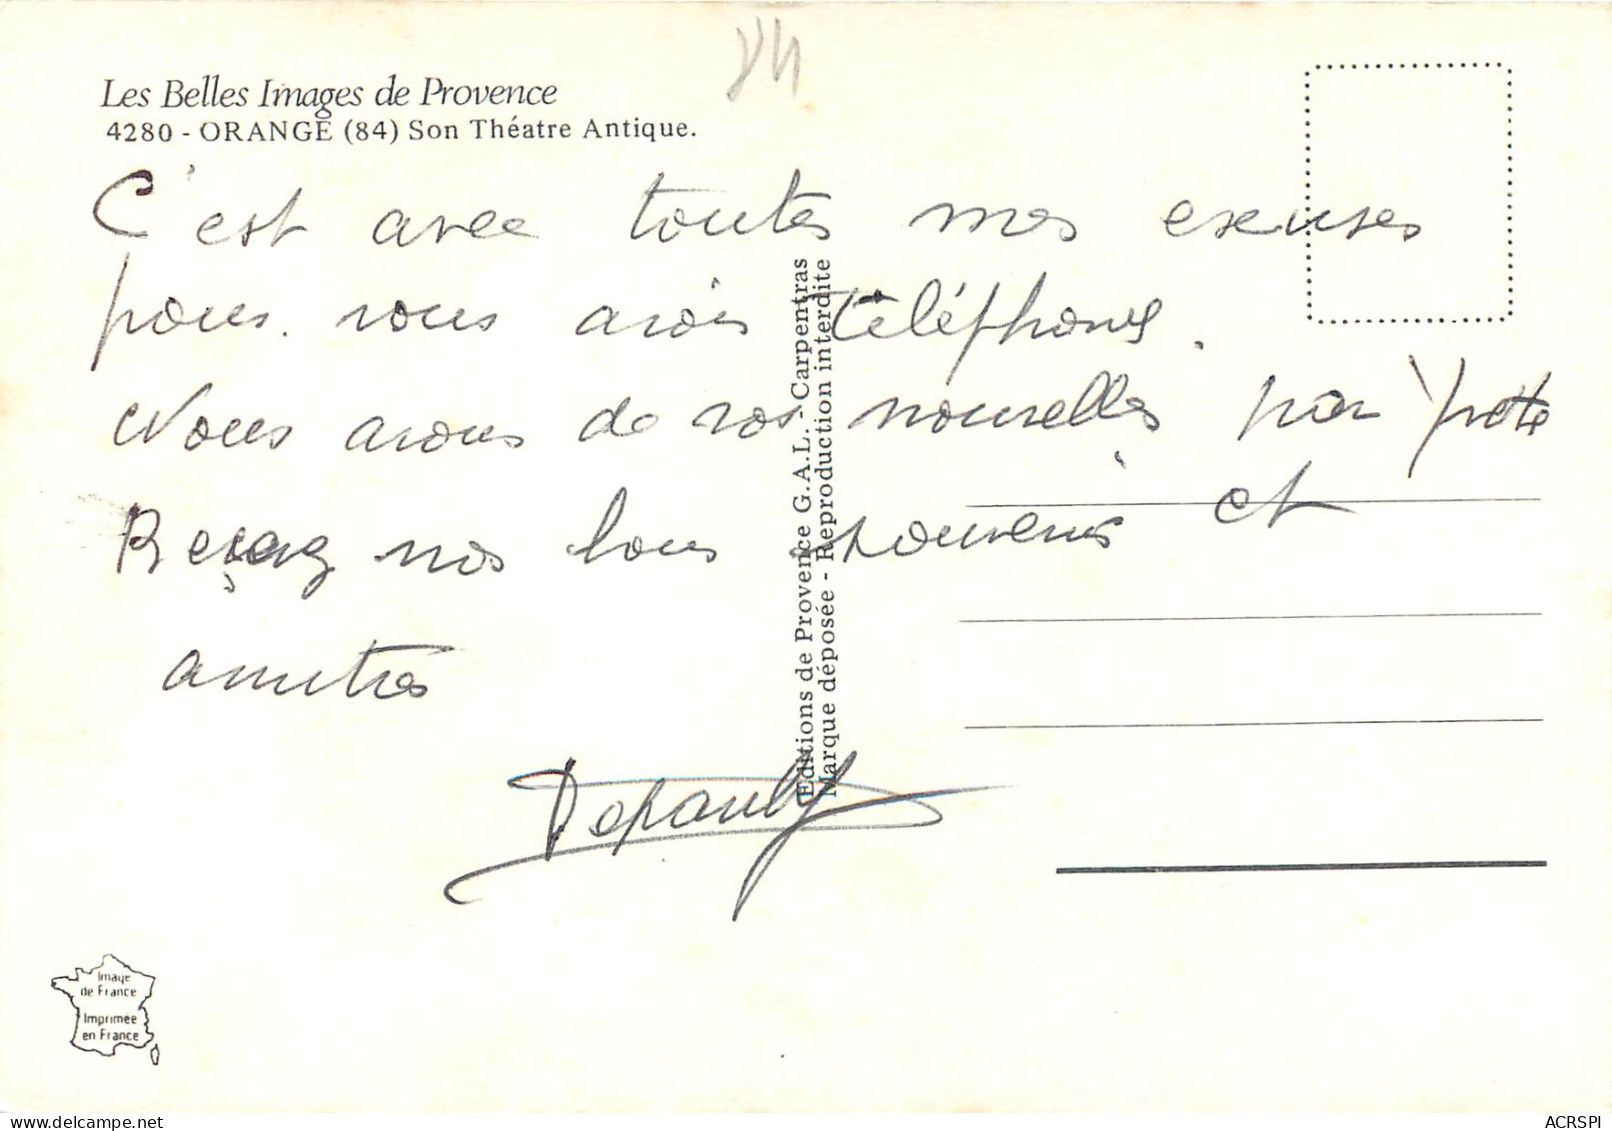 84
Les Belles Images de Provence
4280 - ORANGE (84) Son Théatre Antique.
C'est avec toutes mes excuses
pour vous avoir téléphoné.
Nous avons de vos nouvelles par
Recevez nos bons souvenirs et
amitiés
Editions de Provence G.A.L. - Carpentras
Marque déposée - Reproduction interdite
Image
de France
Imprimée
en France
ACRSPI